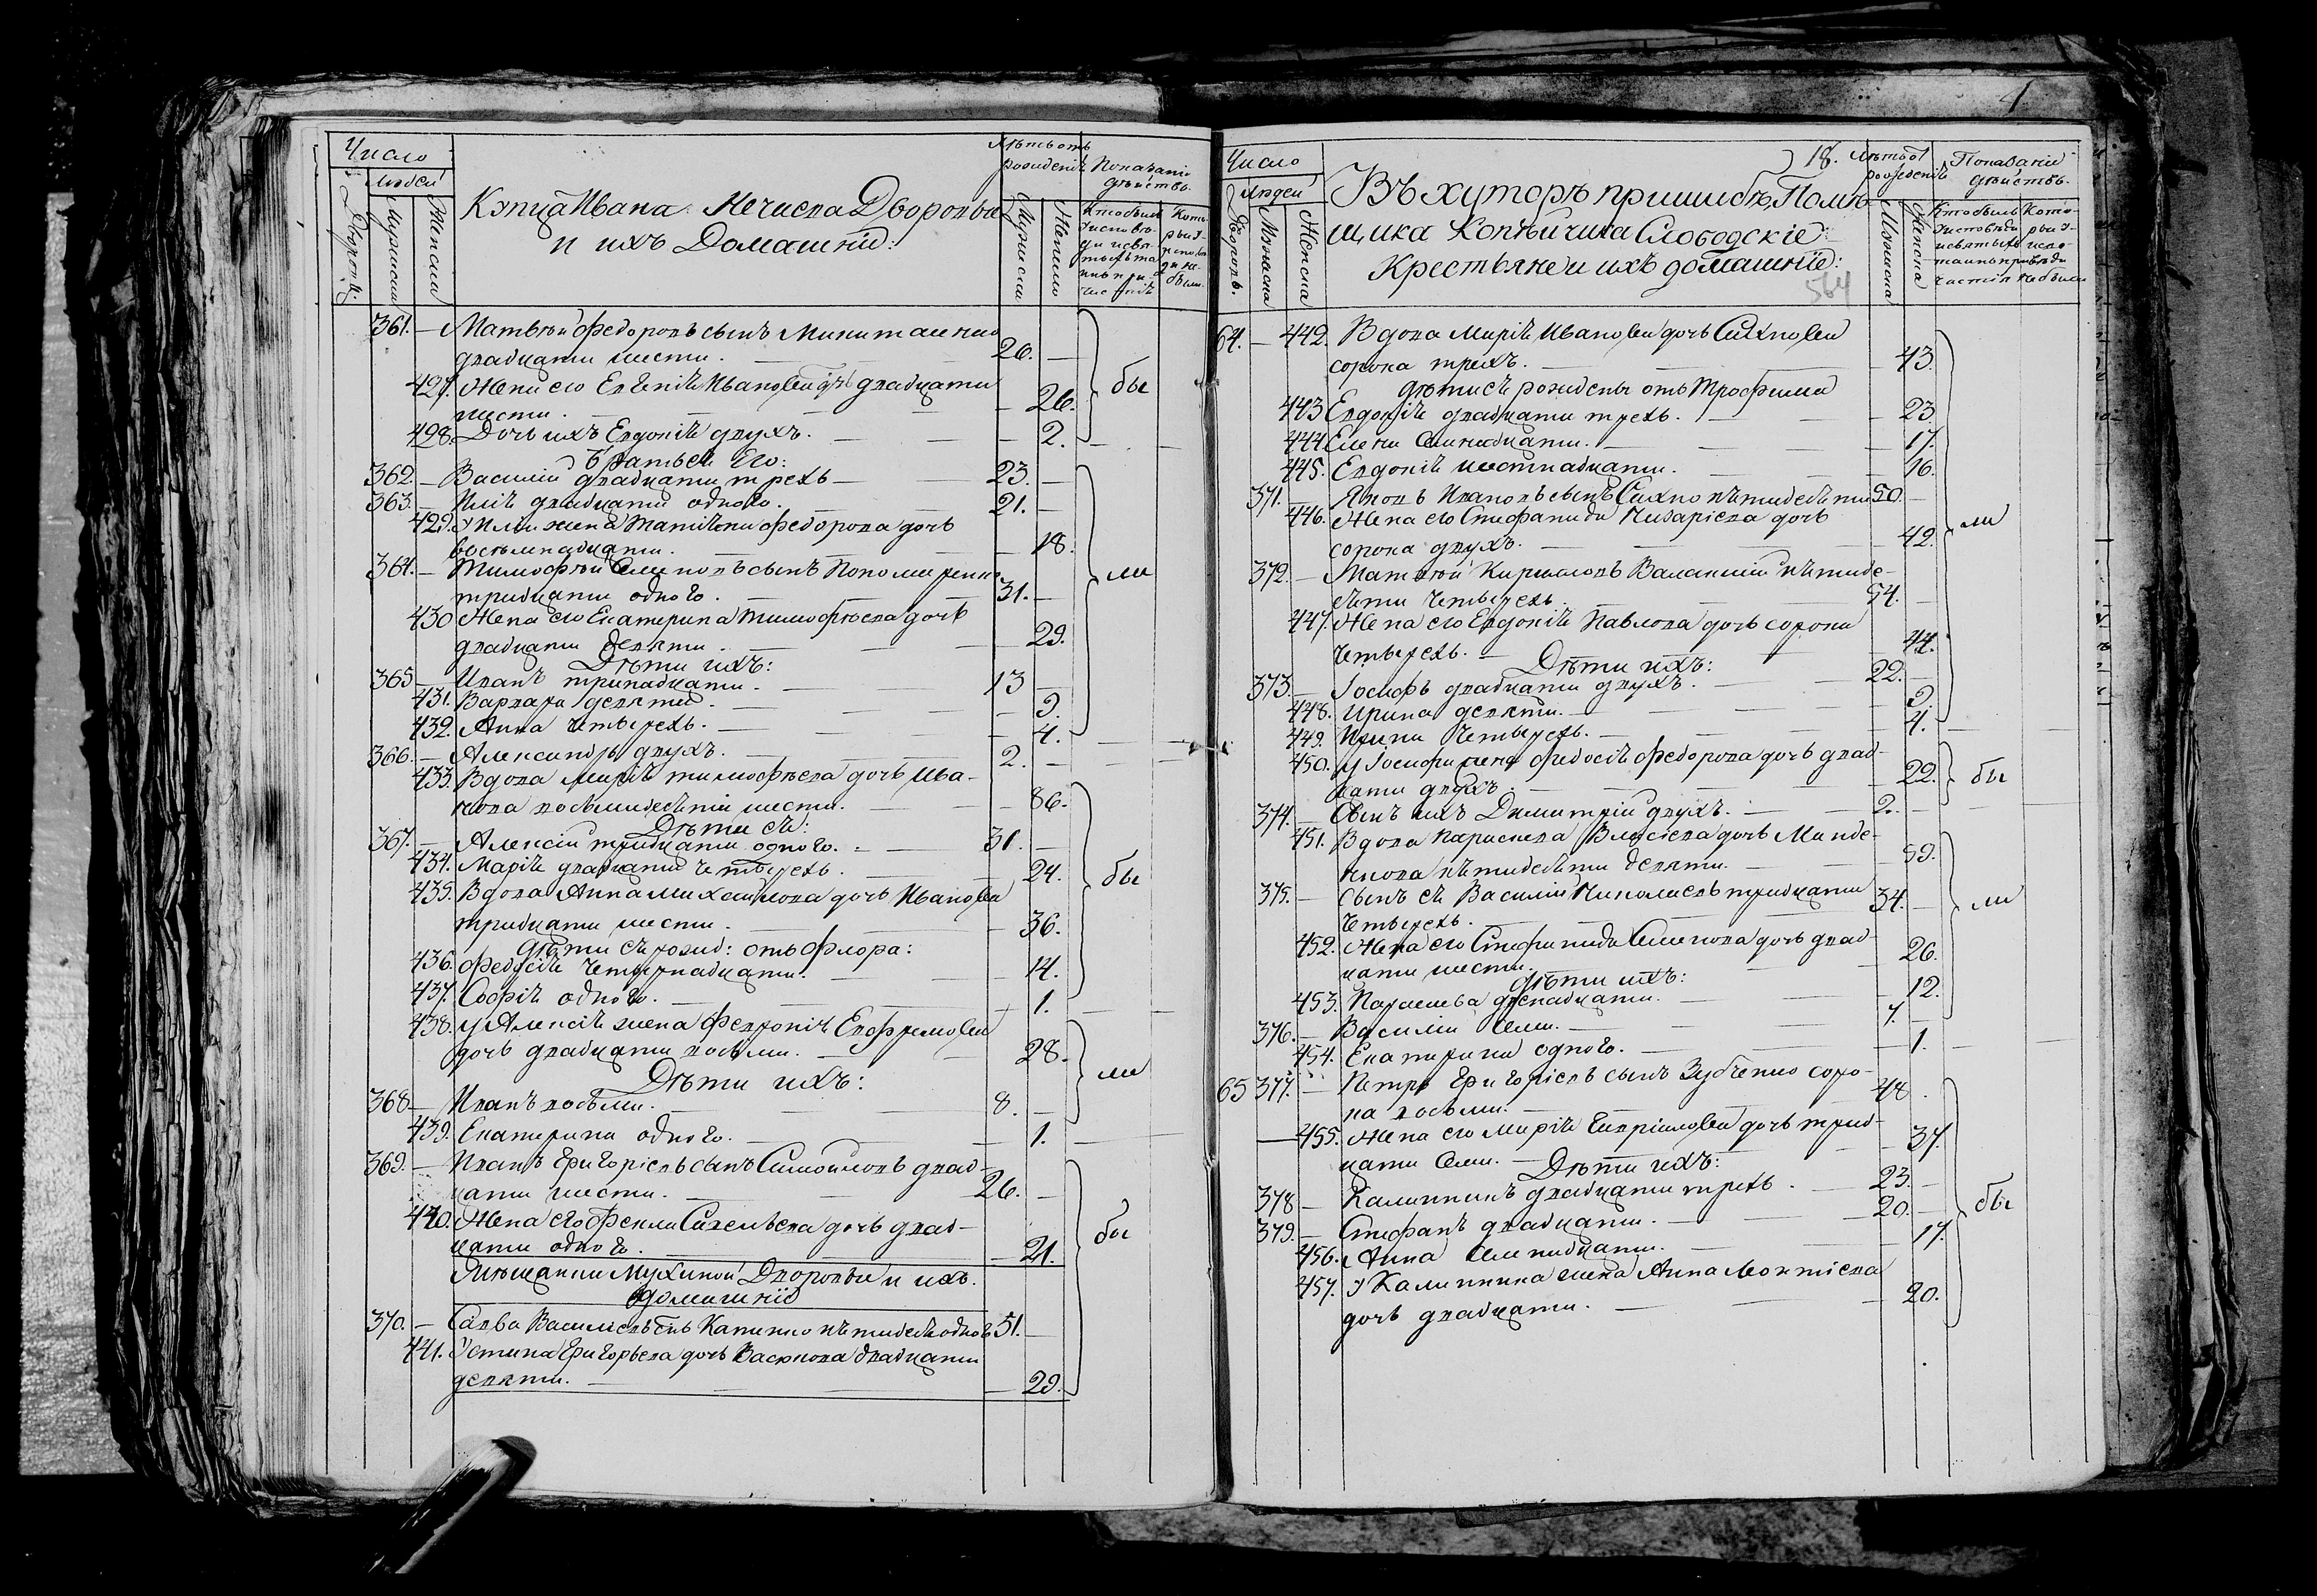 Число
Людей
Дворовъ.
Мужеска
Женска
Купца Ивана Дворовые
и ихъ Домашнїи:
Лѣтъ отъ
рожденія
Мужеска
Женска
Показаніе
дѣйствъ.
361. — Матвѣй Федоровъ сынъ
двадцати шести. — 26. —
427. Жена его Евгенія Иванова дчь двадцати
шести. — 26.
бы
428. Дочь ихъ Евдокія двухъ. — 2.
Братья Его:
362. — Василій двадцати трехъ — 23. —
363. — Илія двадцати одного. — 21. —
429. У Иліи жена Татіяна Федорова дочь
восемнадцати. — 18.
364. — Тимофей Семеновъ сынъ
тридцати одного. — 31. —
ли
430 Жена его Екатерина Тимофѣева дочь
двадцати девяти. — 29.
Дѣти ихъ:
365 — Иванъ тринадцати. — 13 —
431. Варвара девяти. — 9.
432. Анна четырехъ. — 4.
366. — Александръ двухъ. — 2. —
433. Вдова Марія Тимофѣева дочь Ива-
нова восьмидесяти шести. — 86.
Дѣти ея:
367. — Алексій тридцати одного. — 31. —
434. Марія двадцати четырехъ. — 24.
бы
435. Вдова Анна Михайлова дочь Иванова
тридцати шести. — 36.
Дѣти ея рожд: отъ Флора:
436. Федосія четырнадцати. — 14.
437. Софія одного. — 1.
438. У Алексія жена Февронія Ефремова
дочь двадцати восьми. — 28.
ли
Дѣти ихъ:
368 — Иванъ восьми. — 8. —
439. Екатерина одного. — 1.
369. — Иванъ Григоріевъ сынъ Самойловъ двад-
цати шести. — 26. —
440. Жена его Фекла Савельева дочь двад-
цати одного. — 21.
бы
Мѣщанки Мухиной Дворовыи и ихъ
домашнїе
370. — Савва Василіевъ снъ пятидесяти одного 51. —
441. Устина Григорьева дочь Васюкова двадцати
девяти. — 29.
Число
Людей
Дворовъ.
Мужеска
Женска
18.
Въ хуторѣ пришибѣ, Помѣ-
щика Копѣйчика Слободскіе
Крестьяне и ихъ домашнїе:
564
Лѣтъ от
рожденія
Мужеска
Женска
Показаніе
дѣйствъ.
64. — 442. Вдова Марія Иванова дочь Сахнова
сорока трехъ. — 43.
Дѣти ея рождены отъ Трофима
443 Евдокія двадцати трехъ. — 23
444 Елена семнадцати. — 17.
445. Евдокія шестнадцати. — 16.
371. — Яковъ Ивановъ сынъ Сахно пятидесяти 50. —
446. Жена его Стефанида дочь
сорока двухъ. — 42.
ли
372. — Матвѣй Кириловъ пятиде-
сяти четырехъ. — 54. —
447. Жена его Евдокія Павлова дочь сорока
четырехъ. — 44.
Дѣти ихъ:
373. — Іосифъ двадцати двухъ. — 22. —
448. Ирина девяти. — 9.
449. четырехъ. — 4.
450. У Іосифа жена Федосія Федорова дочь двад-
цати двухъ. — 22.
бы
374. — Сынъ ихъ Димитрій двухъ. — 2. —
451. Вдова Параскева Власіева дочь
пятидесяти девяти. — 59.
375. — Сынъ ея Василій Николаевъ тридцати
четырехъ. — 34. —
ли
452. Жена его Стефанида Семенова дочь двад-
цати шести. — 26.
Дѣти ихъ:
453. Параскева двенадцати. — 12.
376. — Василій семи. — 7. —
454. Екатерина одного. — 1.
65 377. — Петръ Григоріевъ сынъ Зубченко соро-
ка восьми. — 48.
455. Жена его Марія Гавріилова дочь трид-
цати семи. — 37.
Дѣти ихъ:
378 — Калинникъ двадцати трехъ. — 23. —
379. — Стефанъ двадцати. — 20. —
бы
456. Анна семнадцати. — 17.
457. У Калинника жена Анна Леонтіева
дочь двадцати. — 20.